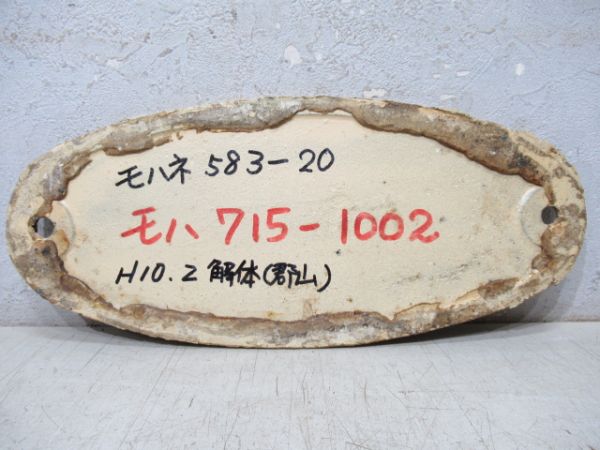 モハネ 583-20
モハ 715-1002
H10.2 解体(郡山)